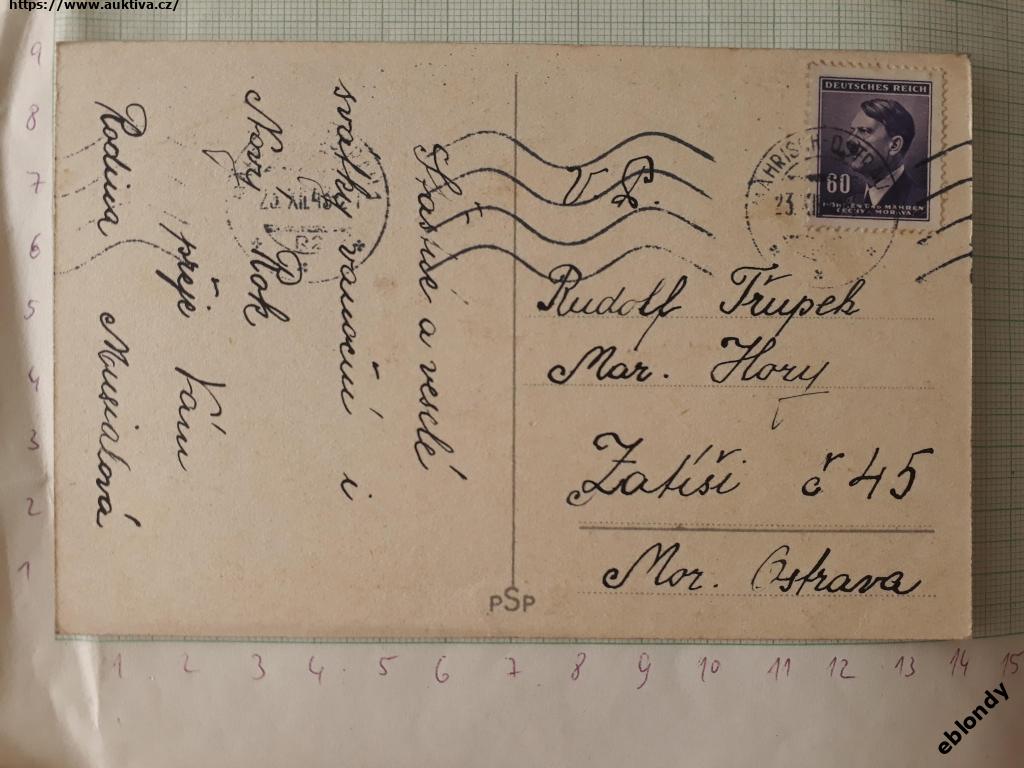 https://www.auktiva.cz/
Šťastné a veselé
svátky vánoční i
Nový Rok
přeje Vám
Rodina Musialová
DEUTSCHES REICH
60
BÖHMEN UND MÄHREN
ČECHY - MORAVA
23. XII. 43
23.
V. P.
Rudolf Třupek
Mar. Hory
Zatíší č 45
Mor. Ostrava
PSP
9
8
7
6
5
4
3
2
1
1 2 3 4 5 6 7 8 9 10 11 12 13 14 15
eblondy